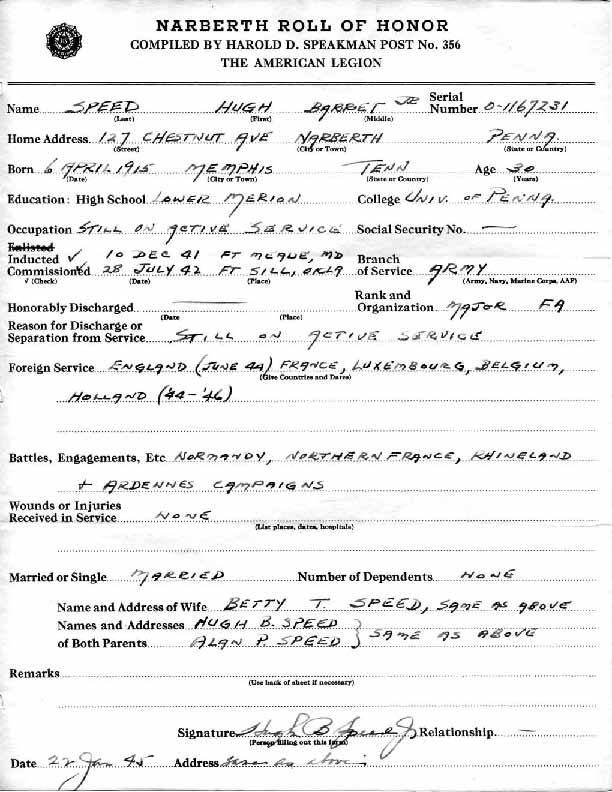 NARBERTH ROLL OF HONOR
COMPILED BY HAROLD D. SPEAKMAN POST No. 356
THE AMERICAN LEGION
Name SPEED HUGH BARRET JR Serial Number O-1167231
(Last) (First) (Middle)
Home Address 127 CHESTNUT AVE NARBERTH PENNA.
(Street) (City or Town) (State or Country)
Born 6 APRIL 1915 MEMPHIS TENN Age 30
(Date) (City or Town) (State or Country) (Years)
Education: High School LOWER MERION College UNIV. OF PENNA.
Occupation STILL ON ACTIVE SERVICE Social Security No. —
Enlisted
Inducted ✓ 10 DEC 41 FT MEADE, MD Branch
Commissioned ✓ 28 JULY 42 FT SILL, OKLA of Service ARMY
√ (Check) (Date) (Place) (Army, Navy, Marine Corps, AAF)
Honorably Discharged —
(Date (Place)
Rank and
Organization MAJOR FA
Reason for Discharge or
Separation from Service STILL ON ACTIVE SERVICE
Foreign Service ENGLAND (JUNE 44) FRANCE, LUXEMBOURG, BELGIUM,
(Give Countries and Dates)
HOLLAND ('44-'46)
Battles, Engagements, Etc NORMANDY, NORTHERN FRANCE, RHINELAND
+ ARDENNES CAMPAIGNS
Wounds or Injuries
Received in Service NONE
(List places, dates, hospitals)
Married or Single MARRIED Number of Dependents NONE
Name and Address of Wife BETTY T. SPEED, SAME AS ABOVE
Names and Addresses HUGH B. SPEED
of Both Parents ALAN P. SPEED } SAME AS ABOVE
Remarks
(Use back of sheet if necessary)
Signature Hugh B Speed Jr Relationship —
(Person filling out this form)
Date 22 Jan 45 Address same as above